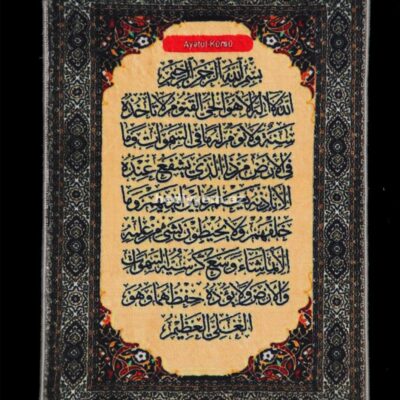 Ayatul Kürsü
بسم الله الرحمن الرحيم
الله لا إله إلا هو الحي القيوم لا تأخذه
سنة ولا نوم له ما في السموات وما
في الأرض من ذا الذي يشفع عنده
إلا بإذنه يعلم ما بين أيديهم وما
خلفهم ولا يحيطون بشيء من علمه
إلا بما شاء وسع كرسيه السموات
والأرض ولا يؤده حفظهما وهو
العلي العظيم